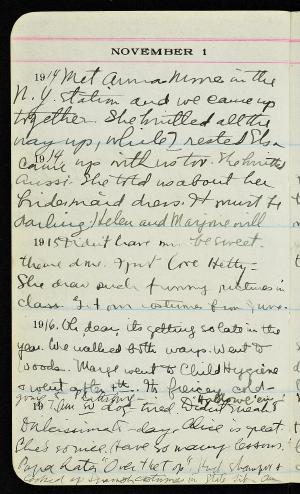 NOVEMBER 1
1914 Met Anna Moore in the
N.Y. Station and we came up
together. She knitted all the
way up, while I rested Elsa
1914 came up with us too. She knitted
aussi. She told us about her
bridesmaid dress. It must be
darling. Helen and Marjorie will
1915 Didn't have me. be sweet.
theme d me. I just love Hetty-
She draw such funny pictures in
class. Got our costumes from June.
1916. Oh dear, its getting so late in the
year. We walked both ways. Went to
Woods. Marge went to Child Hygiene
& went after it. It freezing cold-
19 I am so dog tired. Didn't
day. Alice is great.
She's so nice. Have so many lessons.
Papa hates "Over the top". Had shampoo &
looked up Spanish costumes in